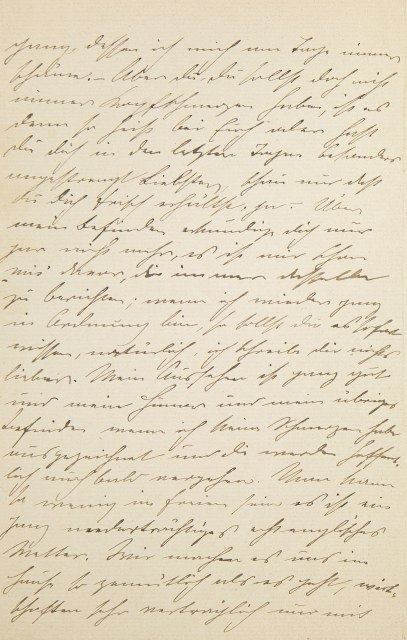 gang, dessen ich mich am Tage immer
schäme. – Aber du, du sollst doch nicht
immer Kopfschmerzen haben, ist es
denn so heiß bei Euch oder hast
du dich in den letzten Tagen besonders
angestrengt Liebster, schau nur daß
du dich frisch erhältst, ja – Über
mein Befinden erkundige dich nur
gar nicht mehr, es ist mir schon
mies davor, dir immer dasselbe
zu berichten; wenn ich wieder ganz
in Ordnung bin, so sollst du es sofort
wissen, natürlich, ich schreibe dir nichts
lieber. Mein Aussehen ist ganz gut
und mein Humor und mein übriges
Befinden wenn ich keine Schmerzen habe
ausgezeichnet und die werden hoffent-
lich auch bald vergehen. Man kann
so wenig im Freien sein es ist ein
ganz niederträchtiges echt englisches
Wetter. Wir machen es uns im
Hause so gemütlich als es geht, wirt-
schaften sehr verträglich nur mit